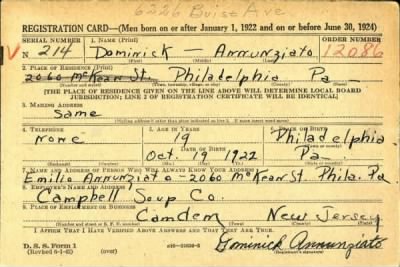 6226 Buist Ave
REGISTRATION CARD—(Men born on or after January 1, 1922 and on or before June 30, 1924)
SERIAL NUMBER 1. NAME (Print) ORDER NUMBER
V N 214 Dominick — Annunziato 12086
(First) (Middle) (Last)
2. PLACE OF RESIDENCE (Print)
2060 McKean St. Philadelphia Pa.
[THE PLACE OF RESIDENCE GIVEN ON THE LINE ABOVE WILL DETERMINE LOCAL BOARD
JURISDICTION; LINE 2 OF REGISTRATION CERTIFICATE WILL BE IDENTICAL]
3. MAILING ADDRESS
Same
[Mailing address if other than place indicated on line 2. If same insert word same]
4. TELEPHONE 5. AGE IN YEARS 6. PLACE OF BIRTH
None 19 Philadelphia
DATE OF BIRTH
Oct. 19 1922 Pa.
7. NAME AND ADDRESS OF PERSON WHO WILL ALWAYS KNOW YOUR ADDRESS
Emilio Annunziato - 2060 McKean St. Phila. Pa
8. EMPLOYER'S NAME AND ADDRESS
Campbell Soup Co.
9. PLACE OF EMPLOYMENT OR BUSINESS
Camden New Jersey
I AFFIRM THAT I HAVE VERIFIED ABOVE ANSWERS AND THAT THEY ARE TRUE.
D. S. S. Form 1
Dominick Annunziato